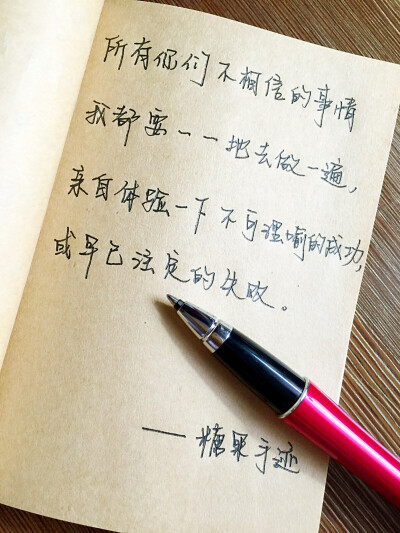 所有你们不相信的事情
我都要一一地去做一遍，
亲自体验一下不可理喻的成功，
或早已注定的失败。
——糖果手迹